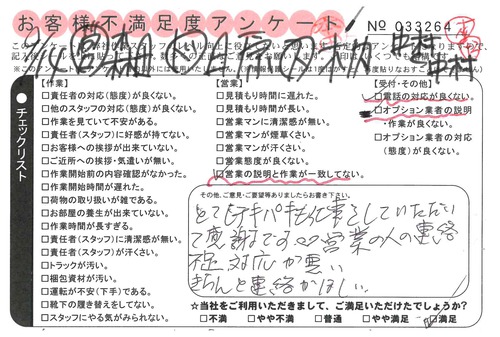 お客様不満足度アンケート
No 033264
チェックリスト
【作業】
□責任者の対応(態度)が良くない。
□他のスタッフの対応(態度)が良くない。
□作業を見ていて不安がある。
□責任者(スタッフ)に好感が持てない。
□お客様への挨拶が出来ていない。
□ご近所への挨拶・気遣いが無い。
□作業開始前の内容確認がなかった。
□作業開始時間が遅れた。
□荷物の取り扱いが雑である。
□お部屋の養生が出来ていない。
□作業時間が長すぎる。
□責任者(スタッフ)に清潔感が無い。
□責任者(スタッフ)が汗くさい。
□トラックが汚い。
□梱包資材が汚い。
□運転が不安(下手)である。
□靴下の履き替えをしてない。
□スタッフにやる気がみられない。
【営業】
□見積もり時間に遅れた。
□見積もり時間が長い。
□営業マンに清潔感が無い。
□営業マンが煙草くさい。
□営業マンが汗くさい。
□営業態度が良くない。
□営業の説明と作業が一致してない。
【受付・その他】
□電話の対応が良くない。
□オプション業者の説明
・作業が良くない。
□オプション業者の対応
(態度)が良くない。
その他、ご意見・ご要望等ありましたらお書き下さい。
とてもテキパキお仕事をしていただい
て感謝です。営業の人の連絡
不足 対応が悪い
きちんと連絡がほしい
☆当社をご利用いただきまして、ご満足いただけたでしょうか?
□不満 □やや不満 □普通 □やや満足 □満足